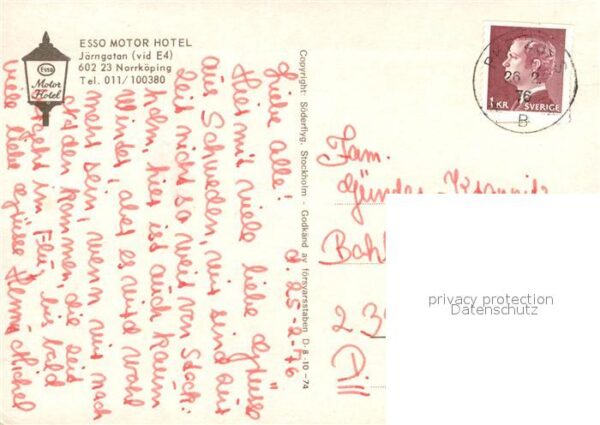 ESSO MOTOR HOTEL
Järngatan (vid E4)
602 23 Norrköping
Tel. 011/100380
Esso
Motor
Hotel
Copyright: Söderflyg, Stockholm - Godkänd av försvarsstaben D-8-10-74
d. 25-2-76
Liebe alle!
Hier mit viele liebe Grüsse
aus Schweden, wir sind zur
Zeit nicht so weit von Stock-
holm, hier ist auch kaum
Winter, aber es wird wohl
mehr sein, wenn wir nach
Norden kommen, die Zeit
geht im Flu, bis bald
viele liebe Grüsse Michel
Fam.
Günder
Bah
2 3
26. 2.
76
B
1 KR
SVERIGE
privacy protection
Datenschutz